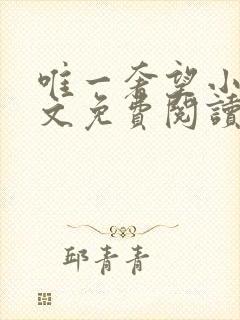 唯一奢望小
文免費閱讀
邱青青